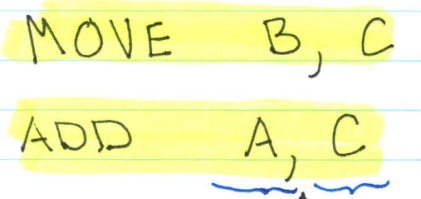 MOVE B, C
ADD A, C